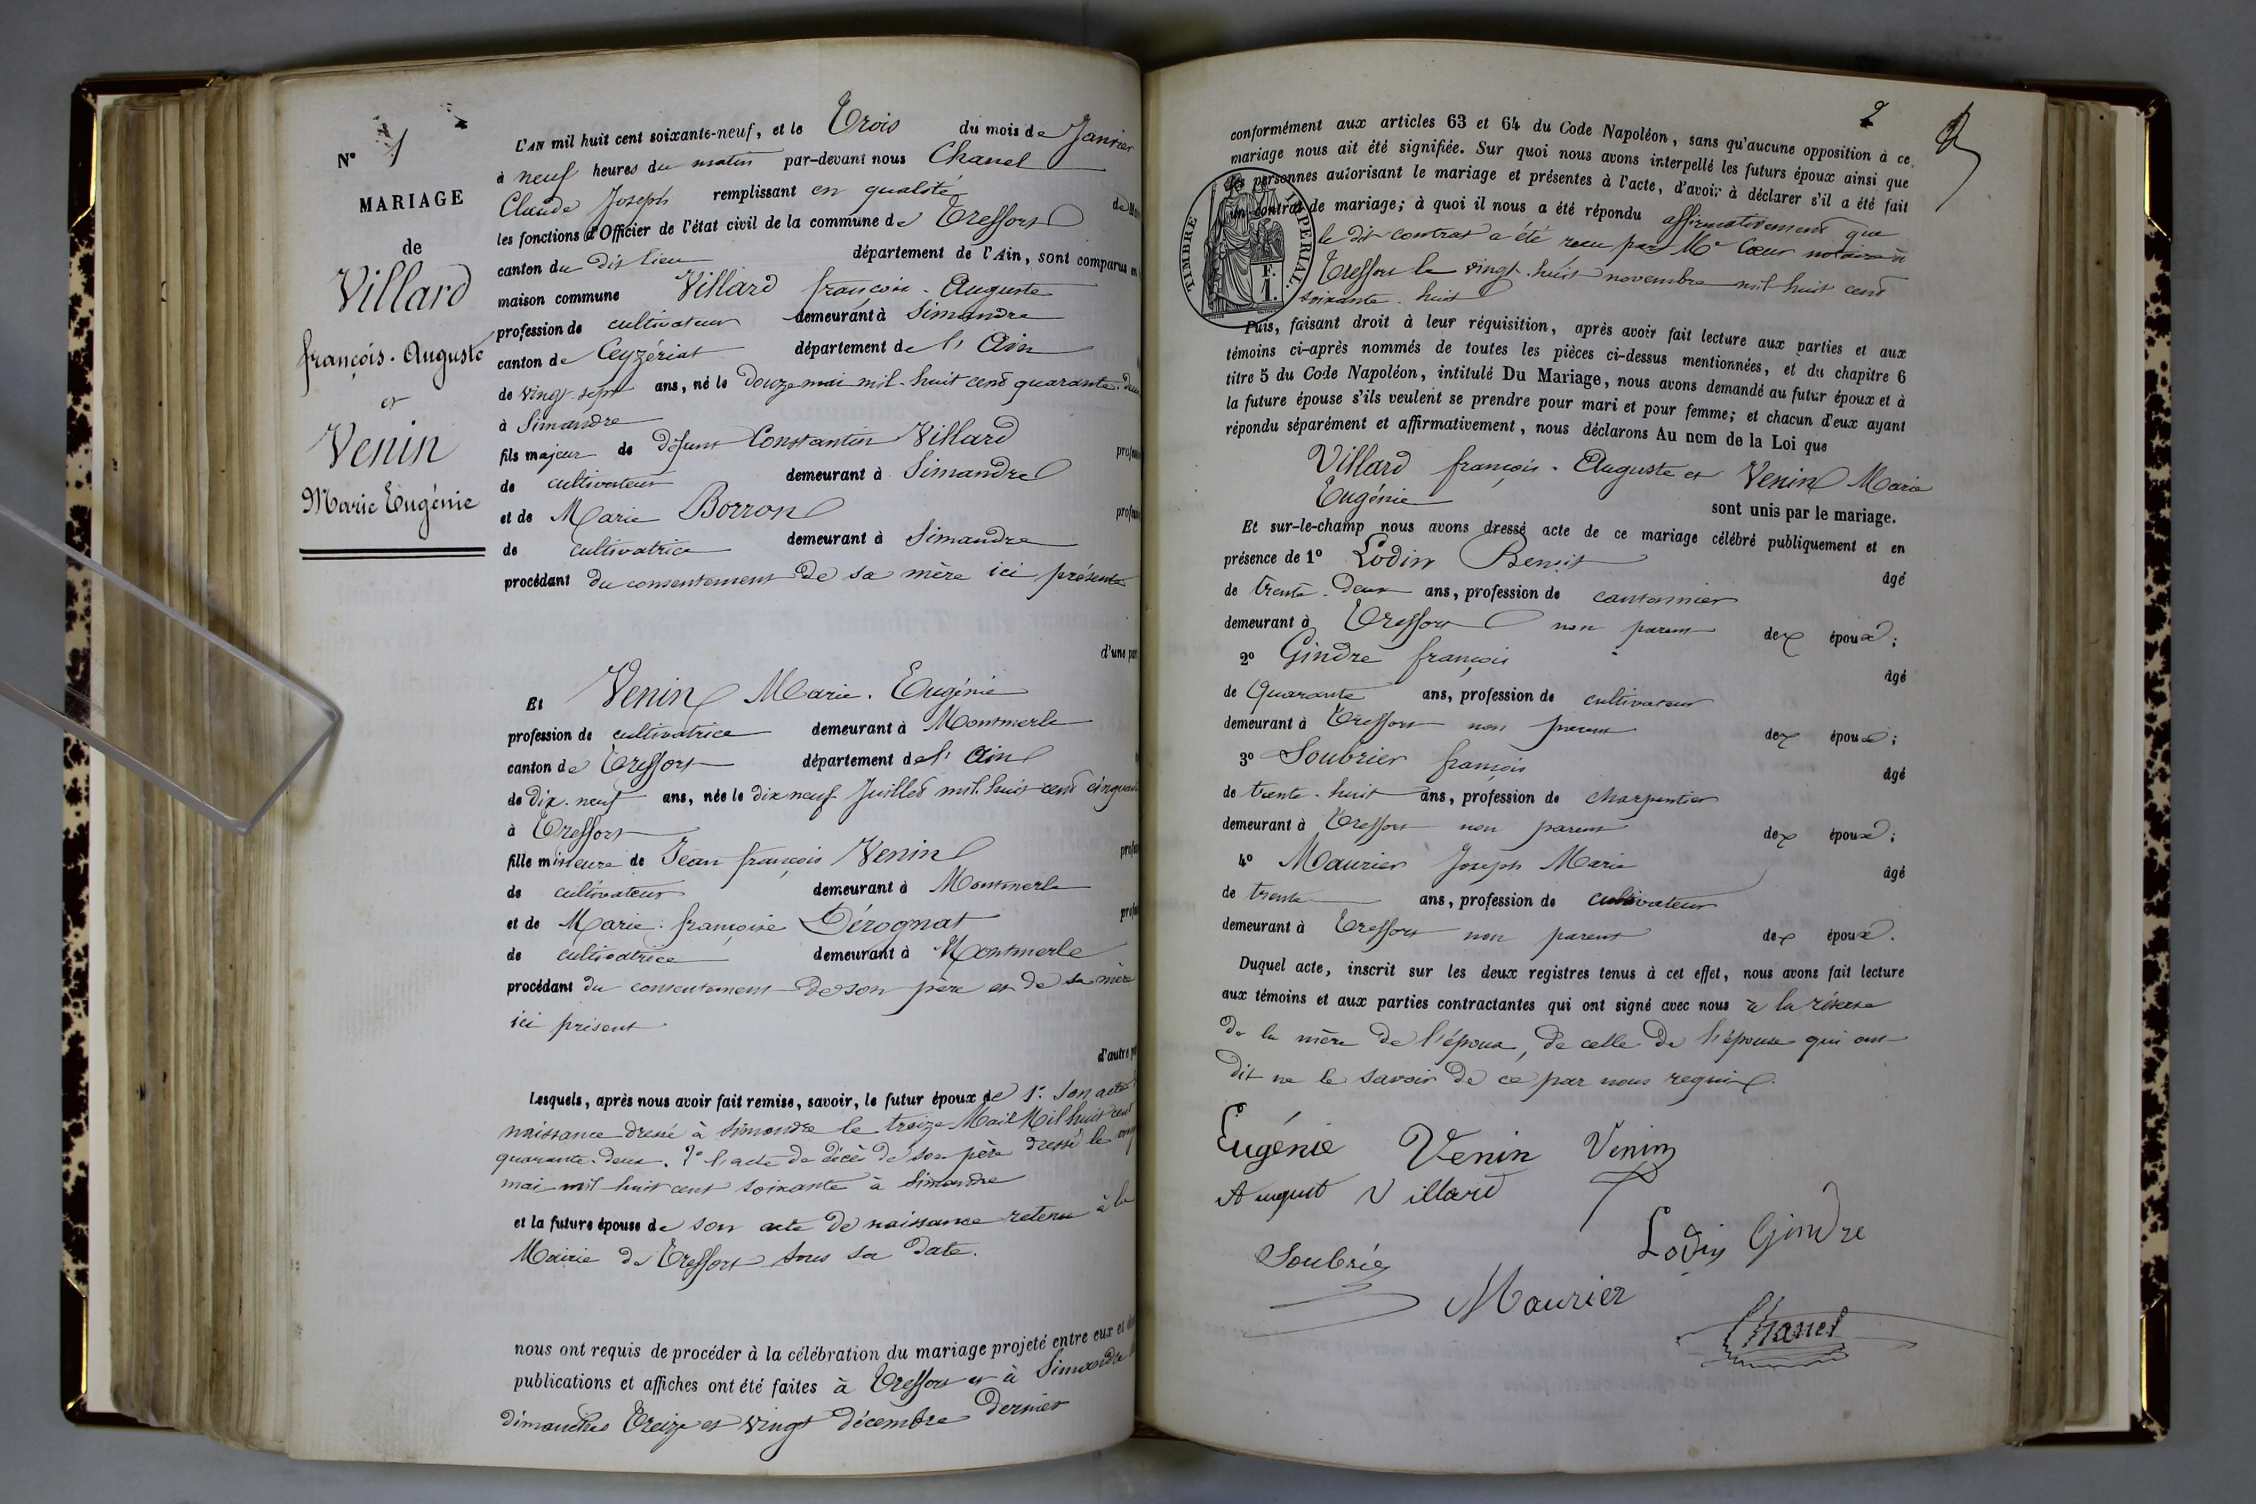 N° 1
MARIAGE
de
Villard
françois. Auguste
et
Venin
Marie Eugénie
L'AN mil huit cent soixante-neuf, et le Trois du mois de Janvier
à neuf heures du matin par-devant nous Chanel
Claude Joseph remplissant en qualité de
les fonctions d'Officier de l'état civil de la commune de Treffort
canton du dit lieu département de l'Ain, sont comparus en
maison commune Villard françois. Auguste
profession de cultivateur demeurant à Simandre
canton de Ceyzériat département de l'Ain
de vingt-sept ans, né le Douze mai mil-huit cent quarante-deux
à Simandre
fils majeur de défunt Constantin Villard
de cultivateur demeurant à Simandre
et de Marie Borron
de cultivatrice demeurant à Simandre
procédant du consentement de sa mère ici présente
d'une par
Et Venin Marie. Eugénie
profession de cultivatrice demeurant à Montmerle
canton de Treffort département de l'Ain
de Dix. neuf ans, née le dix neuf Juillet mil. huit cent cinquante
à Treffort
fille mineure de Jean françois Venin
de cultivateur demeurant à Montmerle
et de Marie. françoise Dérognat
de cultivatrice demeurant à Montmerle
procédant du consentement de son père et de sa mère
ici présent
d'autre
Lesquels, après nous avoir fait remise, savoir, le futur époux de 1° Son acte
naissance dressé à Simandre le treize Mai Mil huit cent
quarante-deux. 2° l'acte de décès de son père dressé le
mai mil huit cent soixante à Simandre
et la future épouse de son acte de naissance retenu à la
Mairie de Treffort sous sa date.
nous ont requis de procéder à la célébration du mariage projeté entre eux et
publications et affiches ont été faites à Treffort et à Simandre
dimanches Treize et vingt décembre dernier
2
conformément aux articles 63 et 64 du Code Napoléon, sans qu'aucune opposition à ce
mariage nous ait été signifiée. Sur quoi nous avons interpellé les futurs époux ainsi que
les personnes autorisant le mariage et présentes à l'acte, d'avoir à déclarer s'il a été fait
un contrat de mariage; à quoi il nous a été répondu affirmativement que
le dit contrat a été reçu par Me Cœur notaire à
Treffort le vingt. huit novembre mil huit cent
soixante. huit
TIMBRE IMPÉRIAL.
F.
1.
Puis, faisant droit à leur réquisition, après avoir fait lecture aux parties et aux
témoins ci-après nommés de toutes les pièces ci-dessus mentionnées, et du chapitre 6
titre 5 du Code Napoléon, intitulé Du Mariage, nous avons demandé au futur époux et à
la future épouse s'ils veulent se prendre pour mari et pour femme; et chacun d'eux ayant
répondu séparément et affirmativement, nous déclarons Au nom de la Loi que
Villard françois. Auguste et Venin Marie
Eugénie sont unis par le mariage.
Et sur-le-champ nous avons dressé acte de ce mariage célébré publiquement et en
présence de 1° Lodin Benoit âgé
de trente. Deux ans, profession de cantonnier
demeurant à Treffort non parent des époux;
2° Gindre françois âgé
de Quarante ans, profession de cultivateur
demeurant à Treffort non parent des époux;
3° Soubrier françois âgé
de trente. huit ans, profession de charpentier
demeurant à Treffort non parent des époux;
4° Maurier Joseph Marie âgé
de trente ans, profession de cultivateur
demeurant à Treffort non parent des époux.
Duquel acte, inscrit sur les deux registres tenus à cet effet, nous avons fait lecture
aux témoins et aux parties contractantes qui ont signé avec nous à la réserve
de la mère de l'époux, de celle de l'épouse qui ont
dit ne le savoir de ce par nous requis.
Eugénie Venin Venin
August Villard
Lodin Gindre
Soubrié
Maurier
Chanel